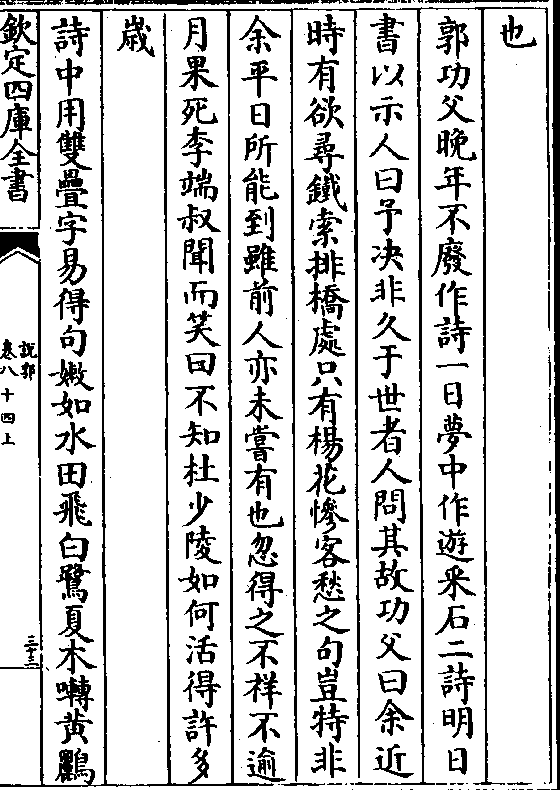 也
郭功父晚年不廢作詩一日夢中作遊采石二詩明日
書以示人曰予决非久于世者人問其故功父曰余近
時有欲尋鐵索排橋處只有楊花慘客愁之句豈特非
余平日所能到雖前人亦未嘗有也忽得之不祥不逾
月果死李端叔聞而笑曰不知杜少陵如何活得許多
歳
詩中用雙疊字易得句嫩如水田飛白鷺夏木囀黃鸝
欽定四庫全書
說郛
卷八十四上
三十三